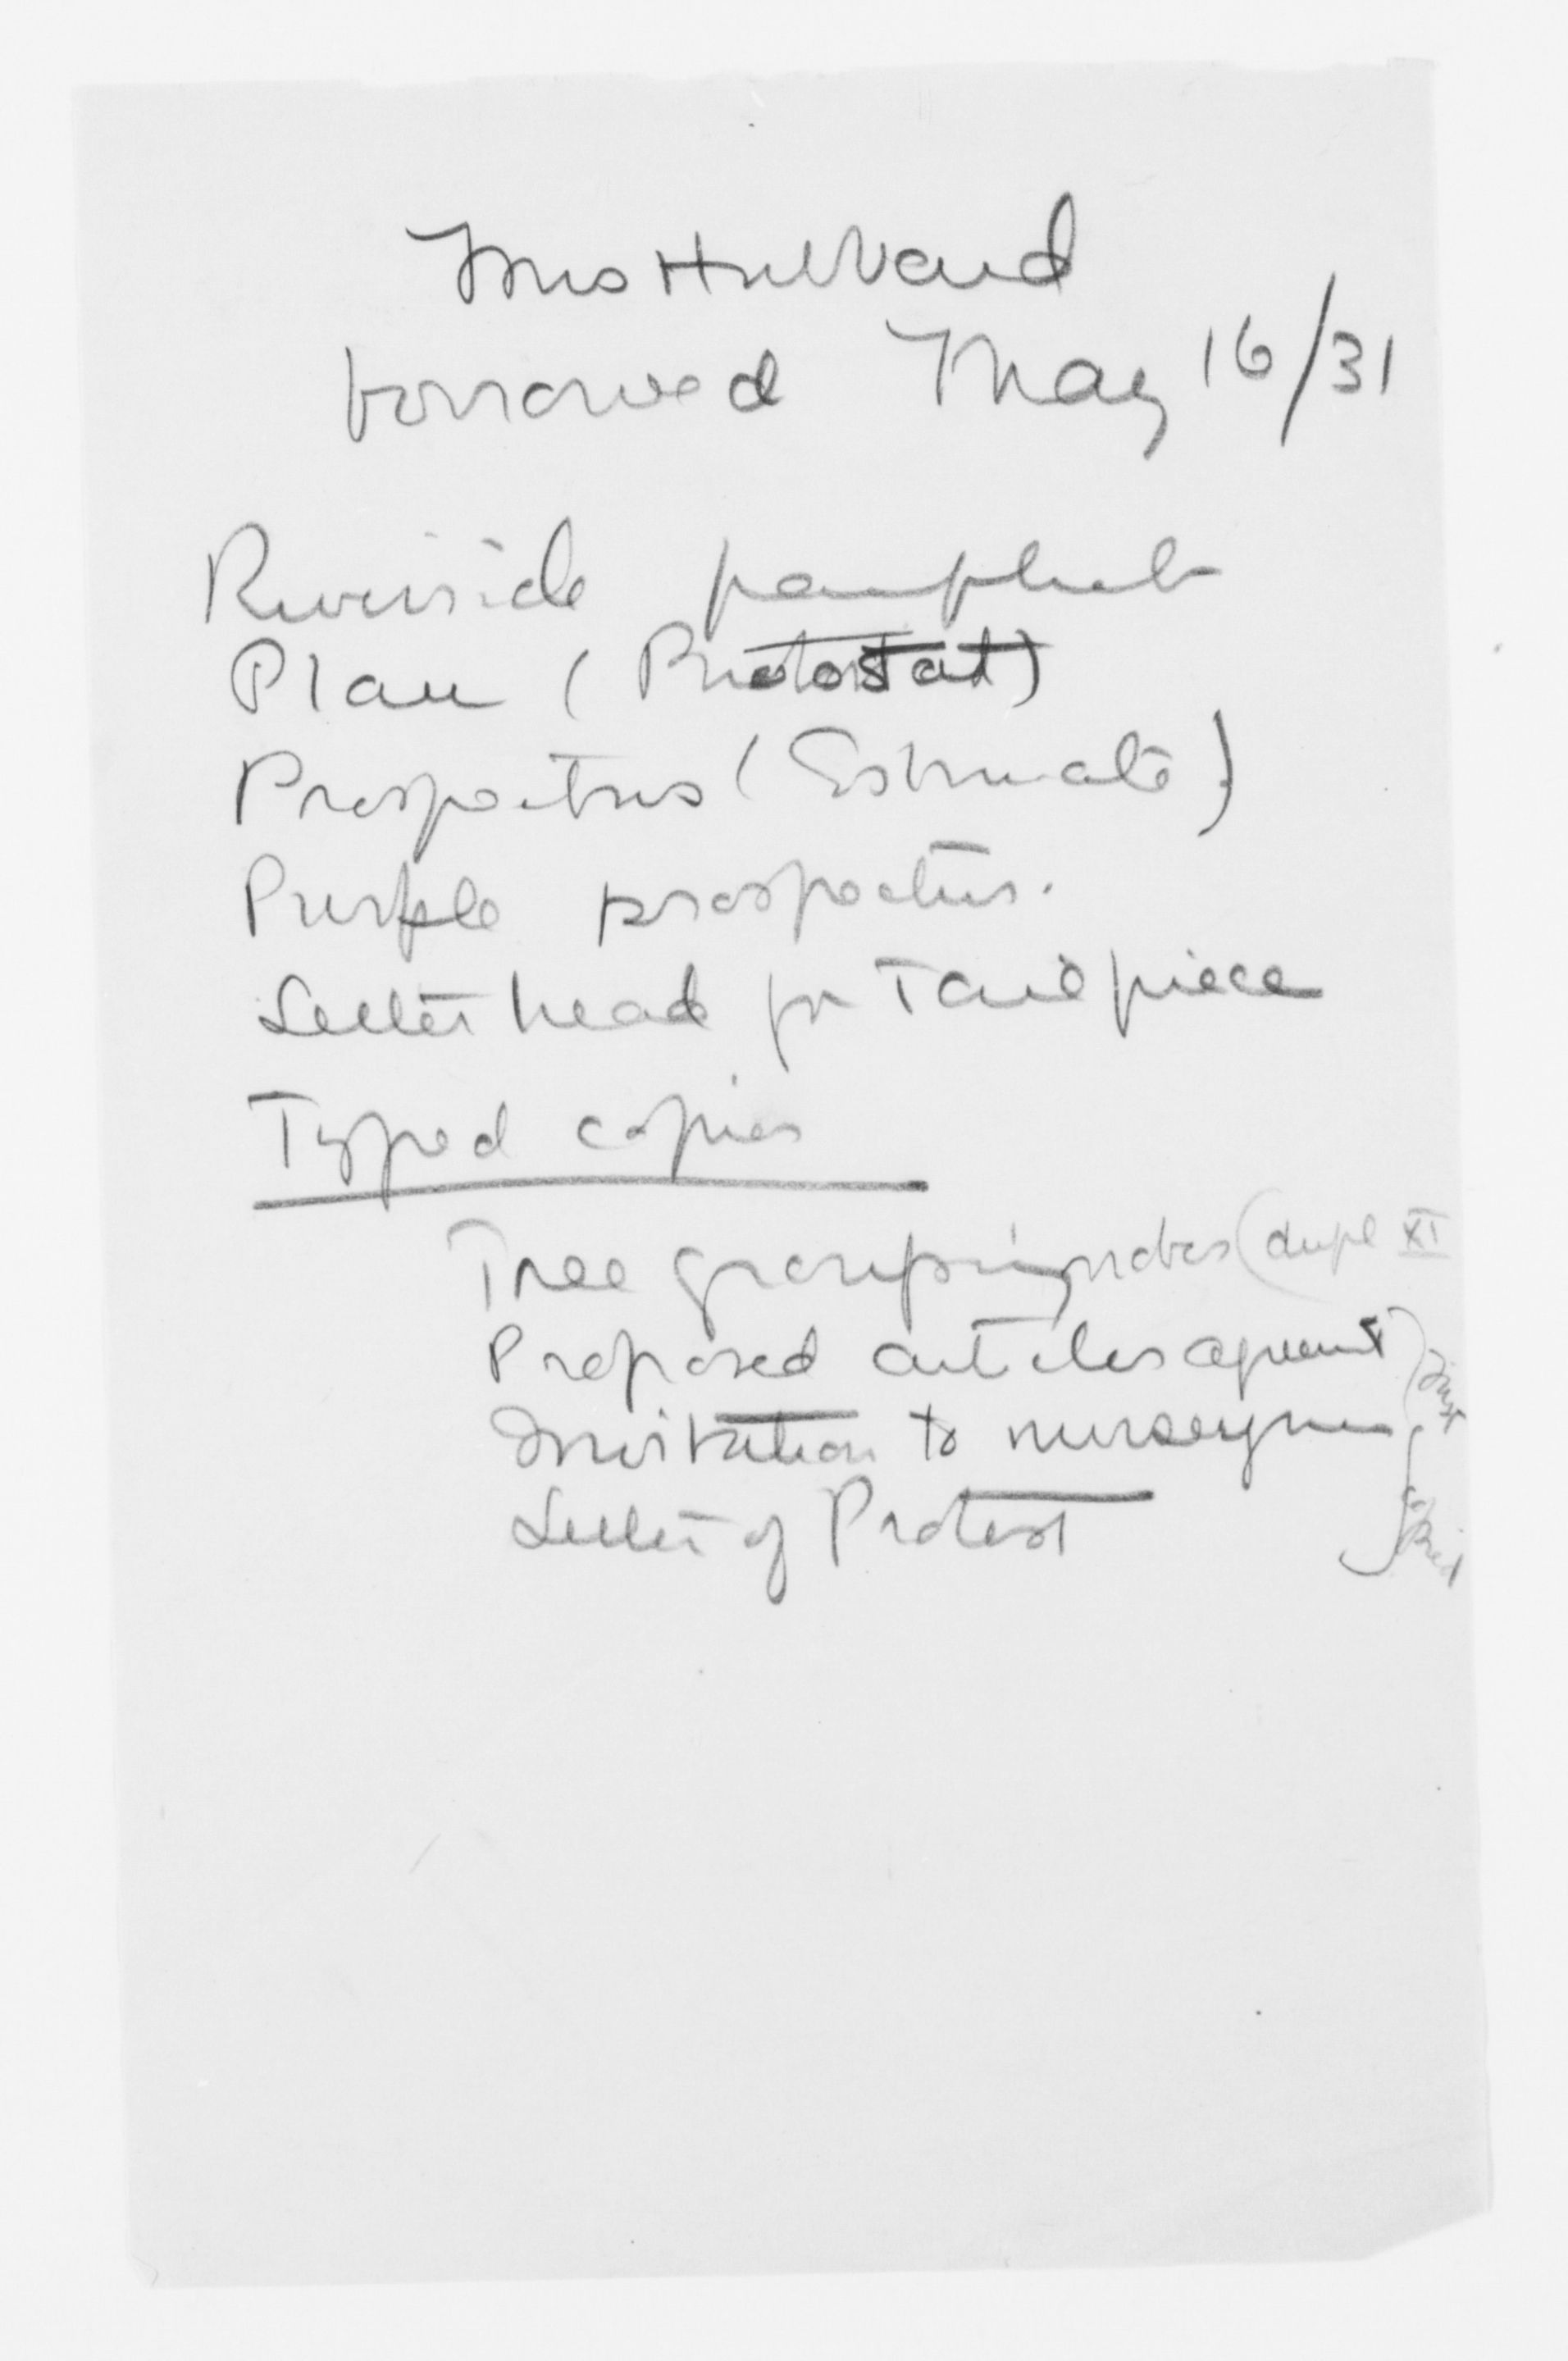 Mrs Hubbard
borrowed May 16/31
Riverside pamphlet
Plan (Photostat)
Prospectus (Estimate)
Purple prospectus.
Letter head for Tail piece
Typed copies
Tree grouping notes (dupl XI
Proposed articles agreemt)
Invitation to nurserymen
Letter of Protest